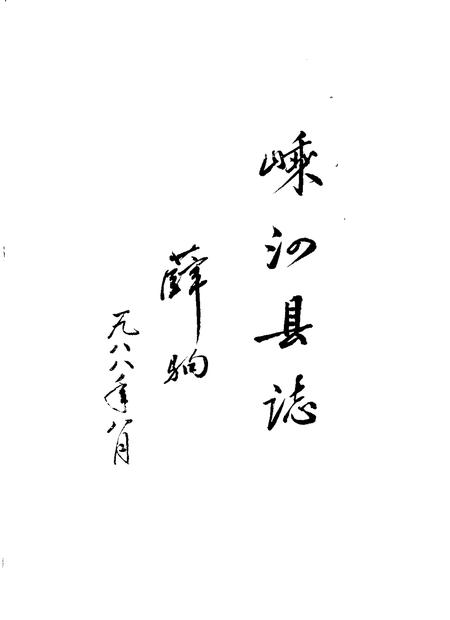 嵊泗县誌
薛驹
一九八八年八月